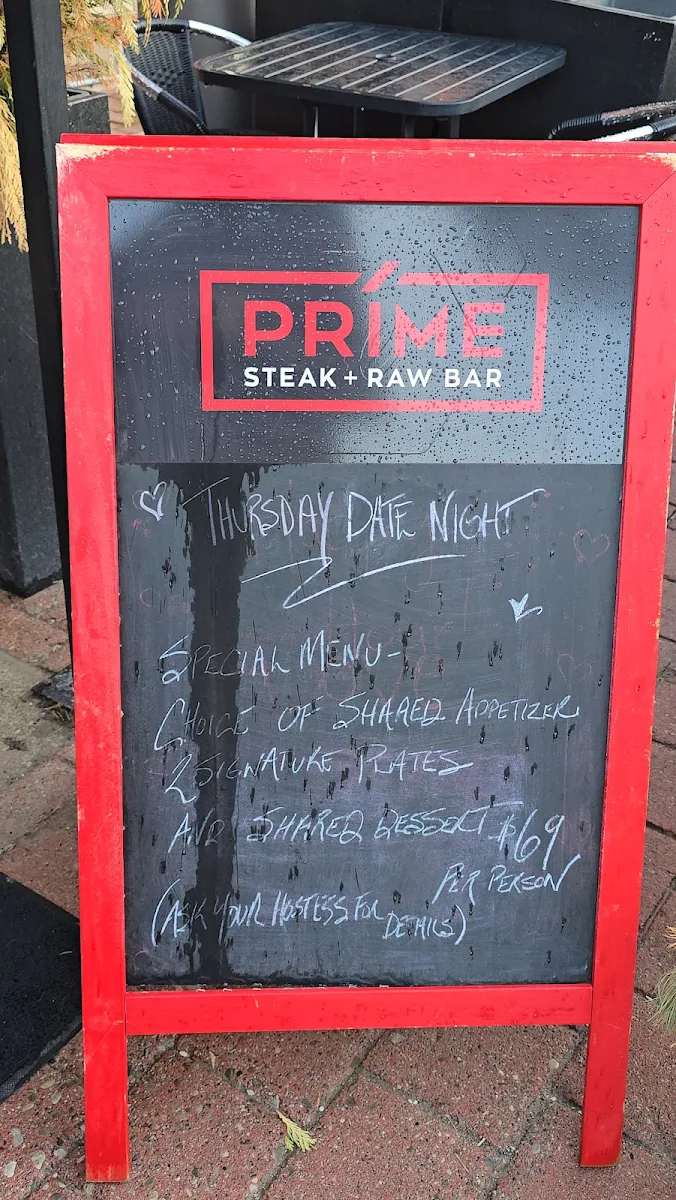 PRÍME
STEAK + RAW BAR
THURSDAY DATE NIGHT
SPECIAL MENU-
CHOICE OF SHARED APPETIZER
2 SIGNATURE PLATES
AND SHARED DESSERT $69
PER PERSON
(ASK YOUR HOSTESS FOR DETAILS)